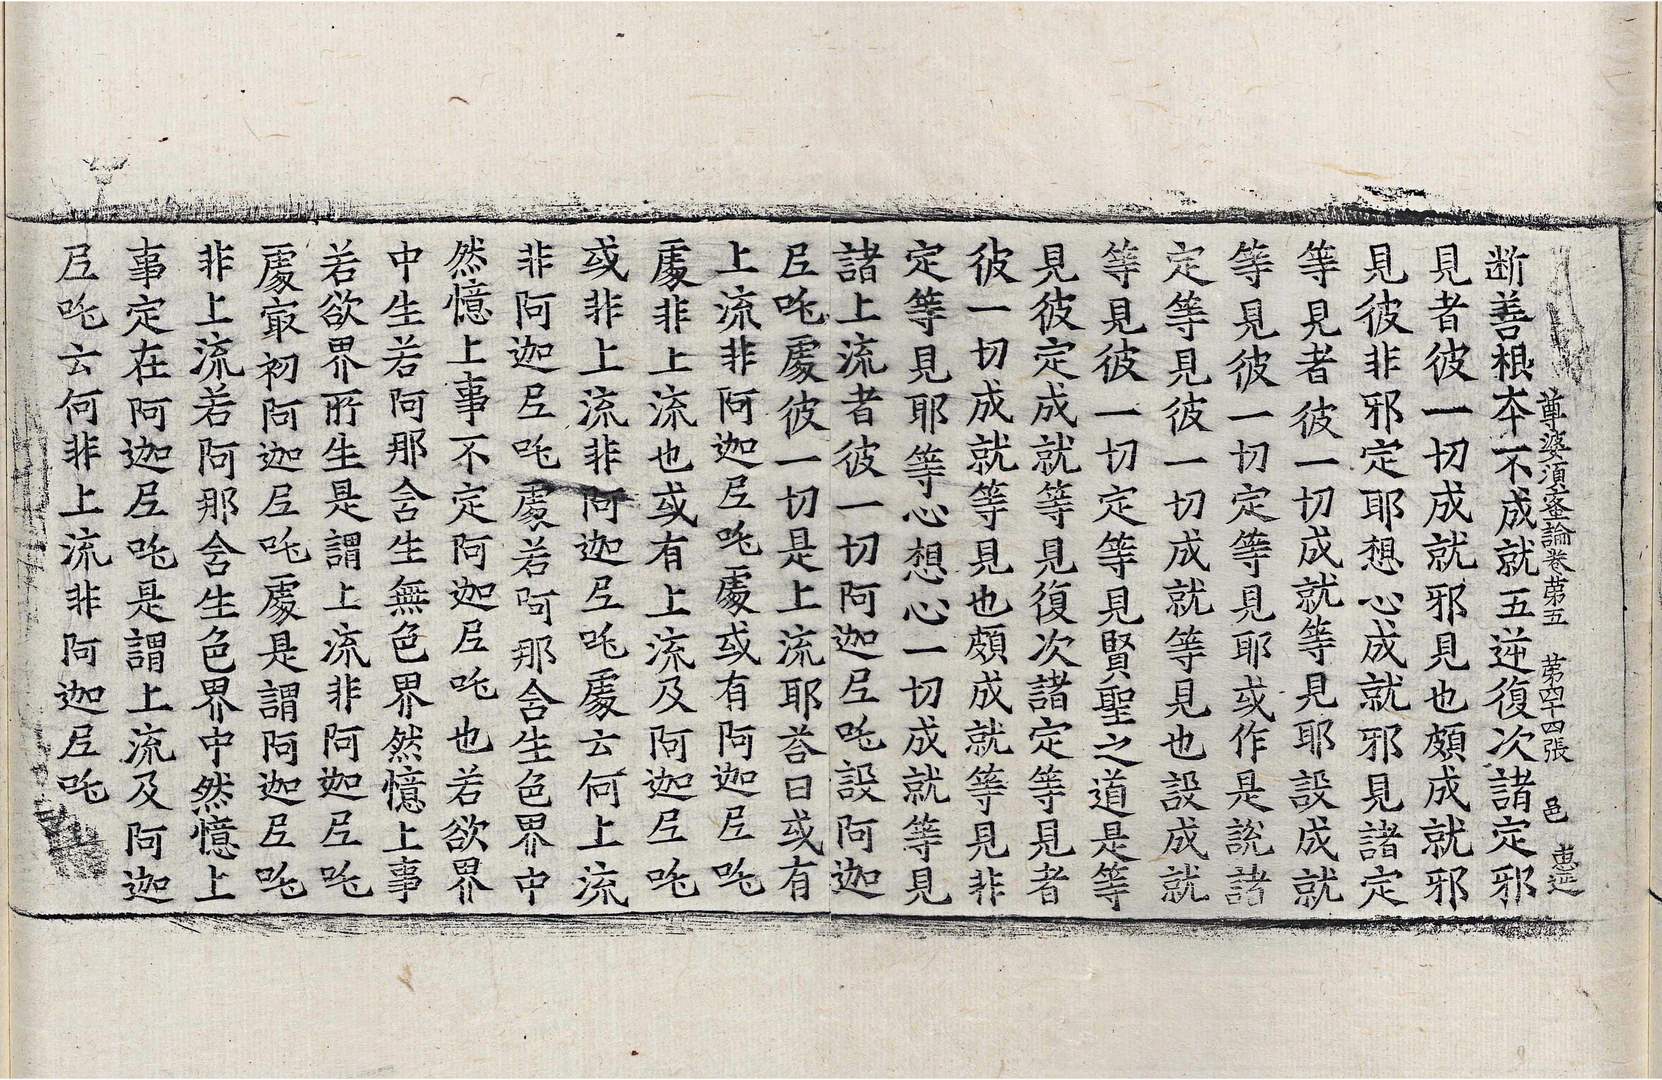 尊婆須蜜論卷第五　第四十四張　邑　惠巡
断善根夲不成就五逆復次諸定邪
見者彼一切成就邪見也頗成就邪
見彼非邪定耶想心成就邪見諸定
等見者彼一切成就等見耶設成就
等見彼一切定等見耶或作是說諸
定等見彼一切成就等見也設成就
等見彼一切定等見賢聖之道是等
見彼定成就等見復次諸定等見者
彼一切成就等見也頗成就等見非
定等見耶等心想心一切成就等見
諸上流者彼一切阿迦尼吒設阿迦
尼吒處彼一切是上流耶荅曰或有
上流非阿迦尼吒處或有阿迦尼吒
處非上流也或有上流及阿迦尼吒
或非上流非阿迦尼吒處云何上流
非阿迦尼吒處若阿那含生色界中
然憶上事不定阿迦尼吒也若欲界
中生若阿那含生無色界然憶上事
若欲界所生是謂上流非阿迦尼吒
處㝡初阿迦尼吒處是謂阿迦尼吒
非上流若阿那含生色界中然憶上
事定在阿迦尼吒是謂上流及阿迦
尼吒云何非上流非阿迦尼吒